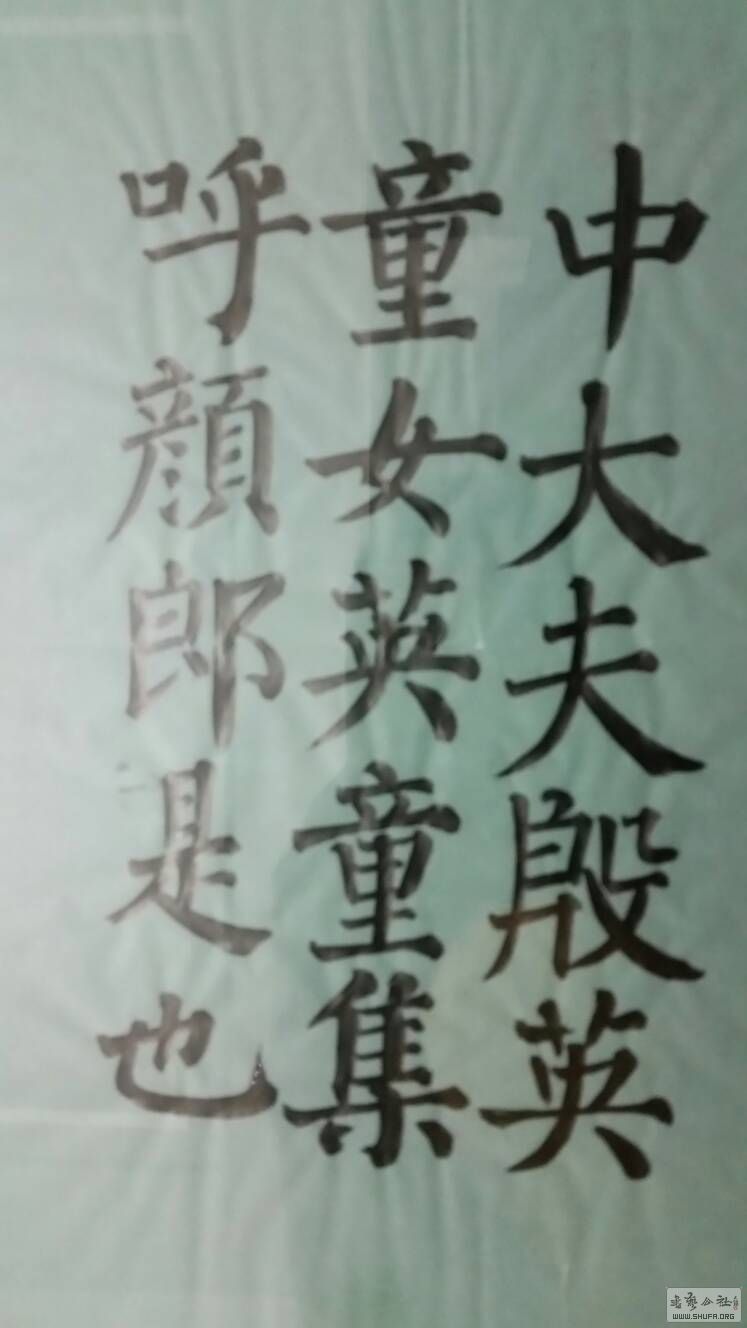 中大夫殷英
童女英童集
呼顔郎是也
WWW.SHUFA.ORG